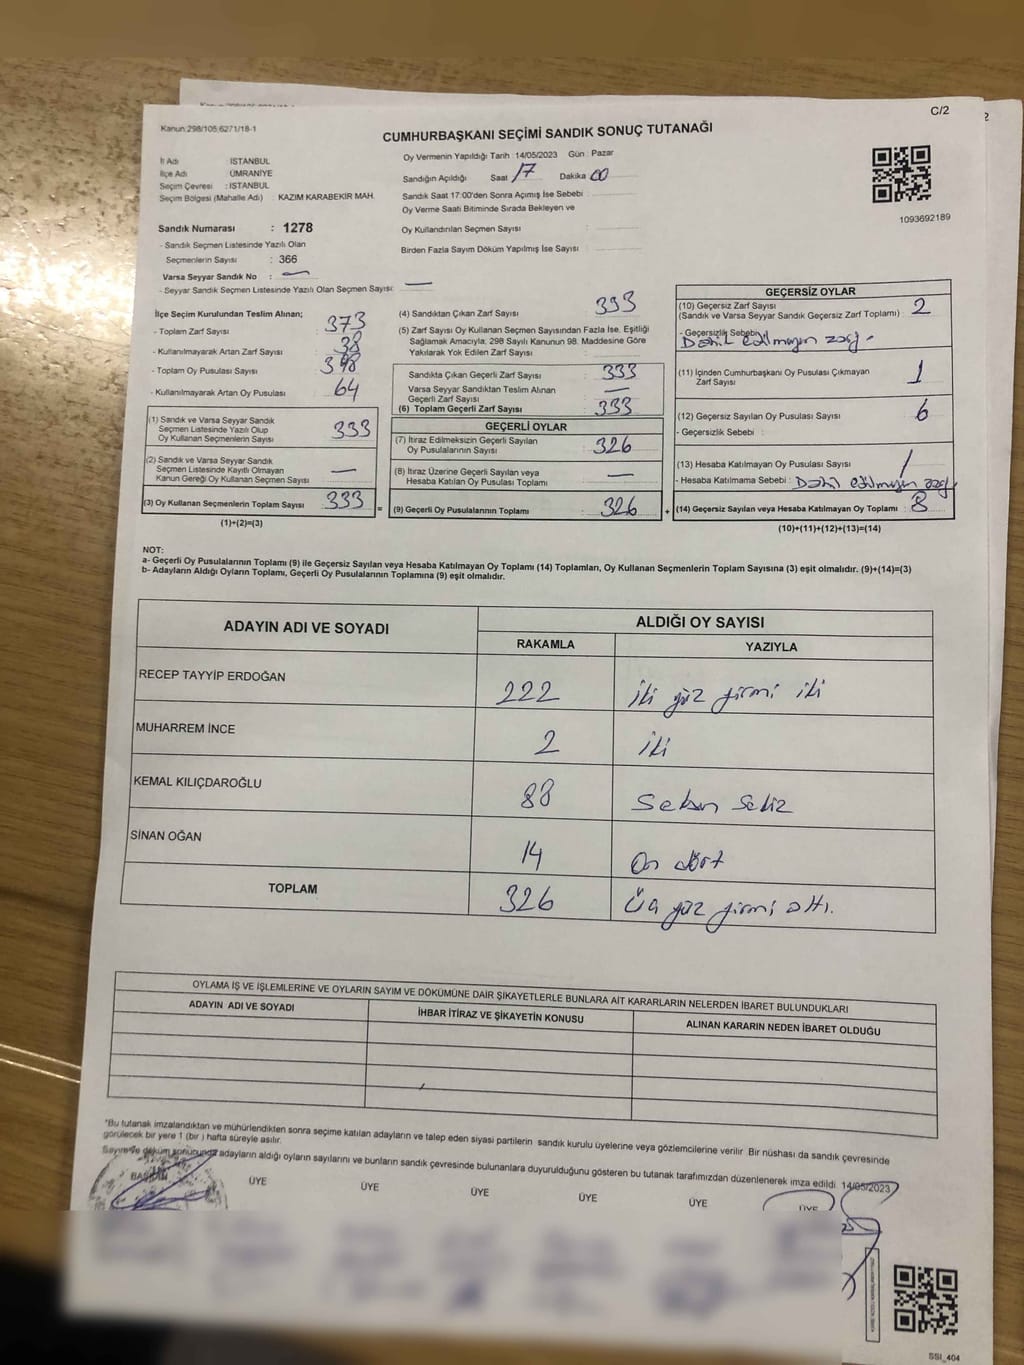 C/2
2
Kanun:298/105;6271/18-1
CUMHURBAŞKANI SEÇİMİ SANDIK SONUÇ TUTANAĞI
İl Adı İSTANBUL
İlçe Adı ÜMRANİYE
Seçim Çevresi : İSTANBUL
Seçim Bölgesi (Mahalle Adı) : KAZIM KARABEKİR MAH.
Oy Vermenin Yapıldığı Tarih : 14/05/2023 Gün : Pazar
Sandığın Açıldığı Saat 17 Dakika 00
Sandık Saat 17:00'den Sonra Açımış İse Sebebi :
Oy Verme Saati Bitiminde Sırada Bekleyen ve
Oy Kullandırılan Seçmen Sayısı :
Birden Fazla Sayım Döküm Yapılmış İse Sayısı :
1093692189
Sandık Numarası : 1278
- Sandık Seçmen Listesinde Yazılı Olan
Seçmenlerin Sayısı : 366
Varsa Seyyar Sandık No : —
- Seyyar Sandık Seçmen Listesinde Yazılı Olan Seçmen Sayısı: —
İlçe Seçim Kurulundan Teslim Alınan;
- Toplam Zarf Sayısı : 373
- Kullanılmayarak Artan Zarf Sayısı : 38
- Toplam Oy Pusulası Sayısı :
- Kullanılmayarak Artan Oy Pusulası : 64
(1) Sandık ve Varsa Seyyar Sandık
Seçmen Listesinde Yazılı Olup
Oy Kullanan Seçmenlerin Sayısı : 333
(2) Sandık ve Varsa Seyyar Sandık
Seçmen Listesinde Kayıtlı Olmayan
Kanun Gereği Oy Kullanan Seçmen Sayısı : —
(3) Oy Kullanan Seçmenlerin Toplam Sayısı : 333
(1)+(2)=(3)
=
(4) Sandıktan Çıkan Zarf Sayısı : 333
(5) Zarf Sayısı Oy Kullanan Seçmen Sayısından Fazla İse, Eşitliği
Sağlamak Amacıyla, 298 Sayılı Kanunun 98. Maddesine Göre
Yakılarak Yok Edilen Zarf Sayısı :
Sandıkta Çıkan Geçerli Zarf Sayısı : 333
Varsa Seyyar Sandıktan Teslim Alınan
Geçerli Zarf Sayısı : —
(6) Toplam Geçerli Zarf Sayısı : 333
GEÇERLİ OYLAR
(7) İtiraz Edilmeksizin Geçerli Sayılan
Oy Pusulalarının Sayısı : 326
(8) İtiraz Üzerine Geçerli Sayılan veya
Hesaba Katılan Oy Pusulası Toplamı : —
(9) Geçerli Oy Pusulalarının Toplamı : 326
+
GEÇERSİZ OYLAR
(10) Geçersiz Zarf Sayısı : 2
(Sandık ve Varsa Seyyar Sandık Geçersiz Zarf Toplamı)
- Geçersizlik Sebebi :
Dahil edilmeyen zarf.
(11) İçinden Cumhurbaşkanı Oy Pusulası Çıkmayan
Zarf Sayısı : 1
(12) Geçersiz Sayılan Oy Pusulası Sayısı : 6
- Geçersizlik Sebebi :
(13) Hesaba Katılmayan Oy Pusulası Sayısı :
- Hesaba Katılmama Sebebi : Dahil edilmeyen zarf
(14) Geçersiz Sayılan veya Hesaba Katılmayan Oy Toplamı : 8
(10)+(11)+(12)+(13)=(14)
NOT:
a- Geçerli Oy Pusulalarının Toplamı (9) ile Geçersiz Sayılan veya Hesaba Katılmayan Oy Toplamı (14) Toplamları, Oy Kullanan Seçmenlerin Toplam Sayısına (3) eşit olmalıdır. (9)+(14)=(3)
b- Adayların Aldığı Oyların Toplamı, Geçerli Oy Pusulalarının Toplamına (9) eşit olmalıdır.
ADAYIN ADI VE SOYADI
ALDIĞI OY SAYISI
RAKAMLA YAZIYLA
RECEP TAYYİP ERDOĞAN 222 iki yüz yirmi iki
MUHARREM İNCE 2 iki
KEMAL KILIÇDAROĞLU 88 Seksen Sekiz
SİNAN OĞAN 14 On dört
TOPLAM 326 Üç yüz yirmi altı.
OYLAMA İŞ VE İŞLEMLERİNE VE OYLARIN SAYIM VE DÖKÜMÜNE DAİR ŞİKAYETLERLE BUNLARA AİT KARARLARIN NELERDEN İBARET BULUNDUKLARI
ADAYIN ADI VE SOYADI İHBAR İTİRAZ VE ŞİKAYETİN KONUSU ALINAN KARARIN NEDEN İBARET OLDUĞU
*Bu tutanak imzalandıktan ve mühürlendikten sonra seçime katılan adayların ve talep eden siyasi partilerin sandık kurulu üyelerine veya gözlemcilerine verilir. Bir nüshası da sandık çevresinde
görülecek bir yere 1 (bir ) hafta süreyle asılır.
Sayım ve döküm sonucunda adayların aldığı oyların sayılarını ve bunların sandık çevresinde bulunanlara duyurulduğunu gösteren bu tutanak tarafımızdan düzenlenerek imza edildi. 14/05/2023
BAŞKAN ÜYE ÜYE ÜYE ÜYE ÜYE ÜYE
SSI_404